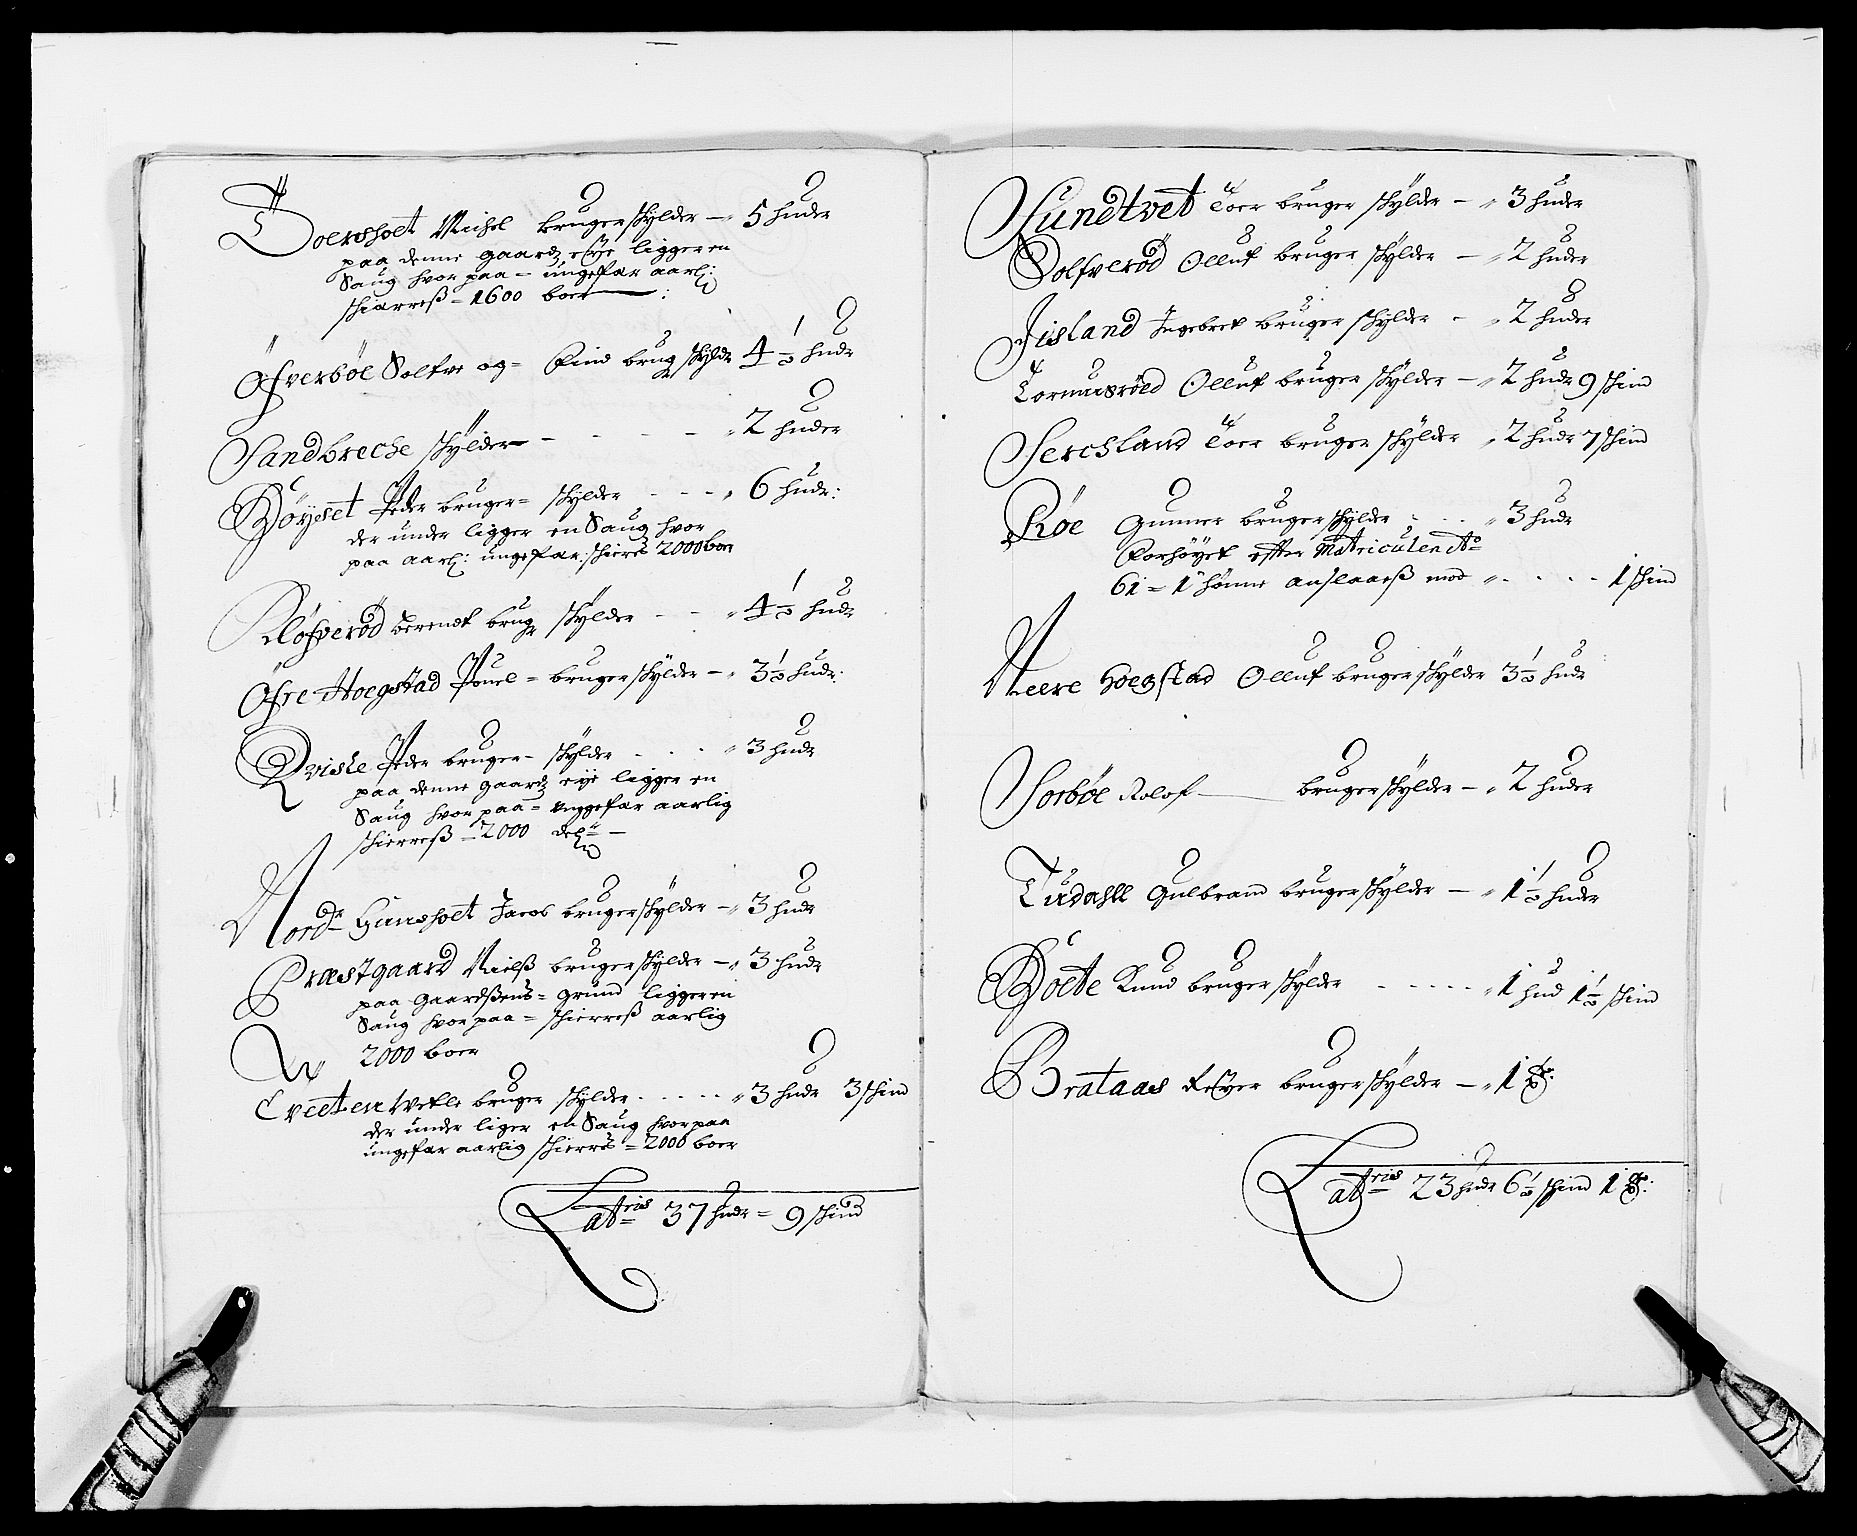 Doenshoet Michel bruger skylder — 5 huder
paa denne gaardz eye ligger en
Saug hvor paa = ungefær aarl:
skiærreß = 1600 boer :
Øfverbøe Solfve og = Find brug skyld 4 1/2 hudr
Sandbreche skylder — 2 huder
Bøyeset Peder bruger = skylder - - - 6 hudr:
der under ligger en Saug hvor
paa aarl: ungefær skieres 2000 boer
Kløfverød Berendt brug skylder - - 4 1/2 hudr
Øfre Hoegstad Pouel = bruger skylder — 3 1/2 hudr:
Qvisle Peder bruger - skylder - - - 3 hudr
paa denne gaardz eye ligger en
Saug hvor paa = ungefær aarlig
skierreß = 2000 del:
Nordr Hunshoet Jacob bruger skylder — 3 hudr
Præstgaard Nielß bruger skylder — 3 hudr
paa Gaardßens = grund ligger en
Saug hvor paa = skierreß aarlig
2000 boer
Tveeten Vetle bruger skylder - - - - - 3 hudr 3 skind
der under liger en Saug hvor paa
ungefær aarlig skierres = 2000 boer
Latris 37 hudr = 9 skind
Sundtvet Toer bruger skylder — 3 huder
Solfverød Olluf bruger skylder — 2 huder
Jisland Ingebret bruger skylder - 2 huder
Tormusrøed Olluf bruger skylder — 2 hudr 9 skind
Serchland Toer bruger skylder 2 hudr 7 skind
Røe Gunner bruger skylder - - - 3 hudr
Forhøyet efter Matriculen Ao
61 = 1 hønne anslaarß mod - - - - 1 skind
Neere Hoegstad Olluf bruger skylder 3 1/2 hudr
Sorbøe Rolof — bruger skylder — 2 huder
Tudahll Gulbrand bruger skylder — 1 1/2 huder
Bøete Knud bruger skylder - - - - - 1 hud 1 1/2 skind
Brataas Reyer bruger skylder — 1
Latris 23 hudr 6 1/2 skind 1